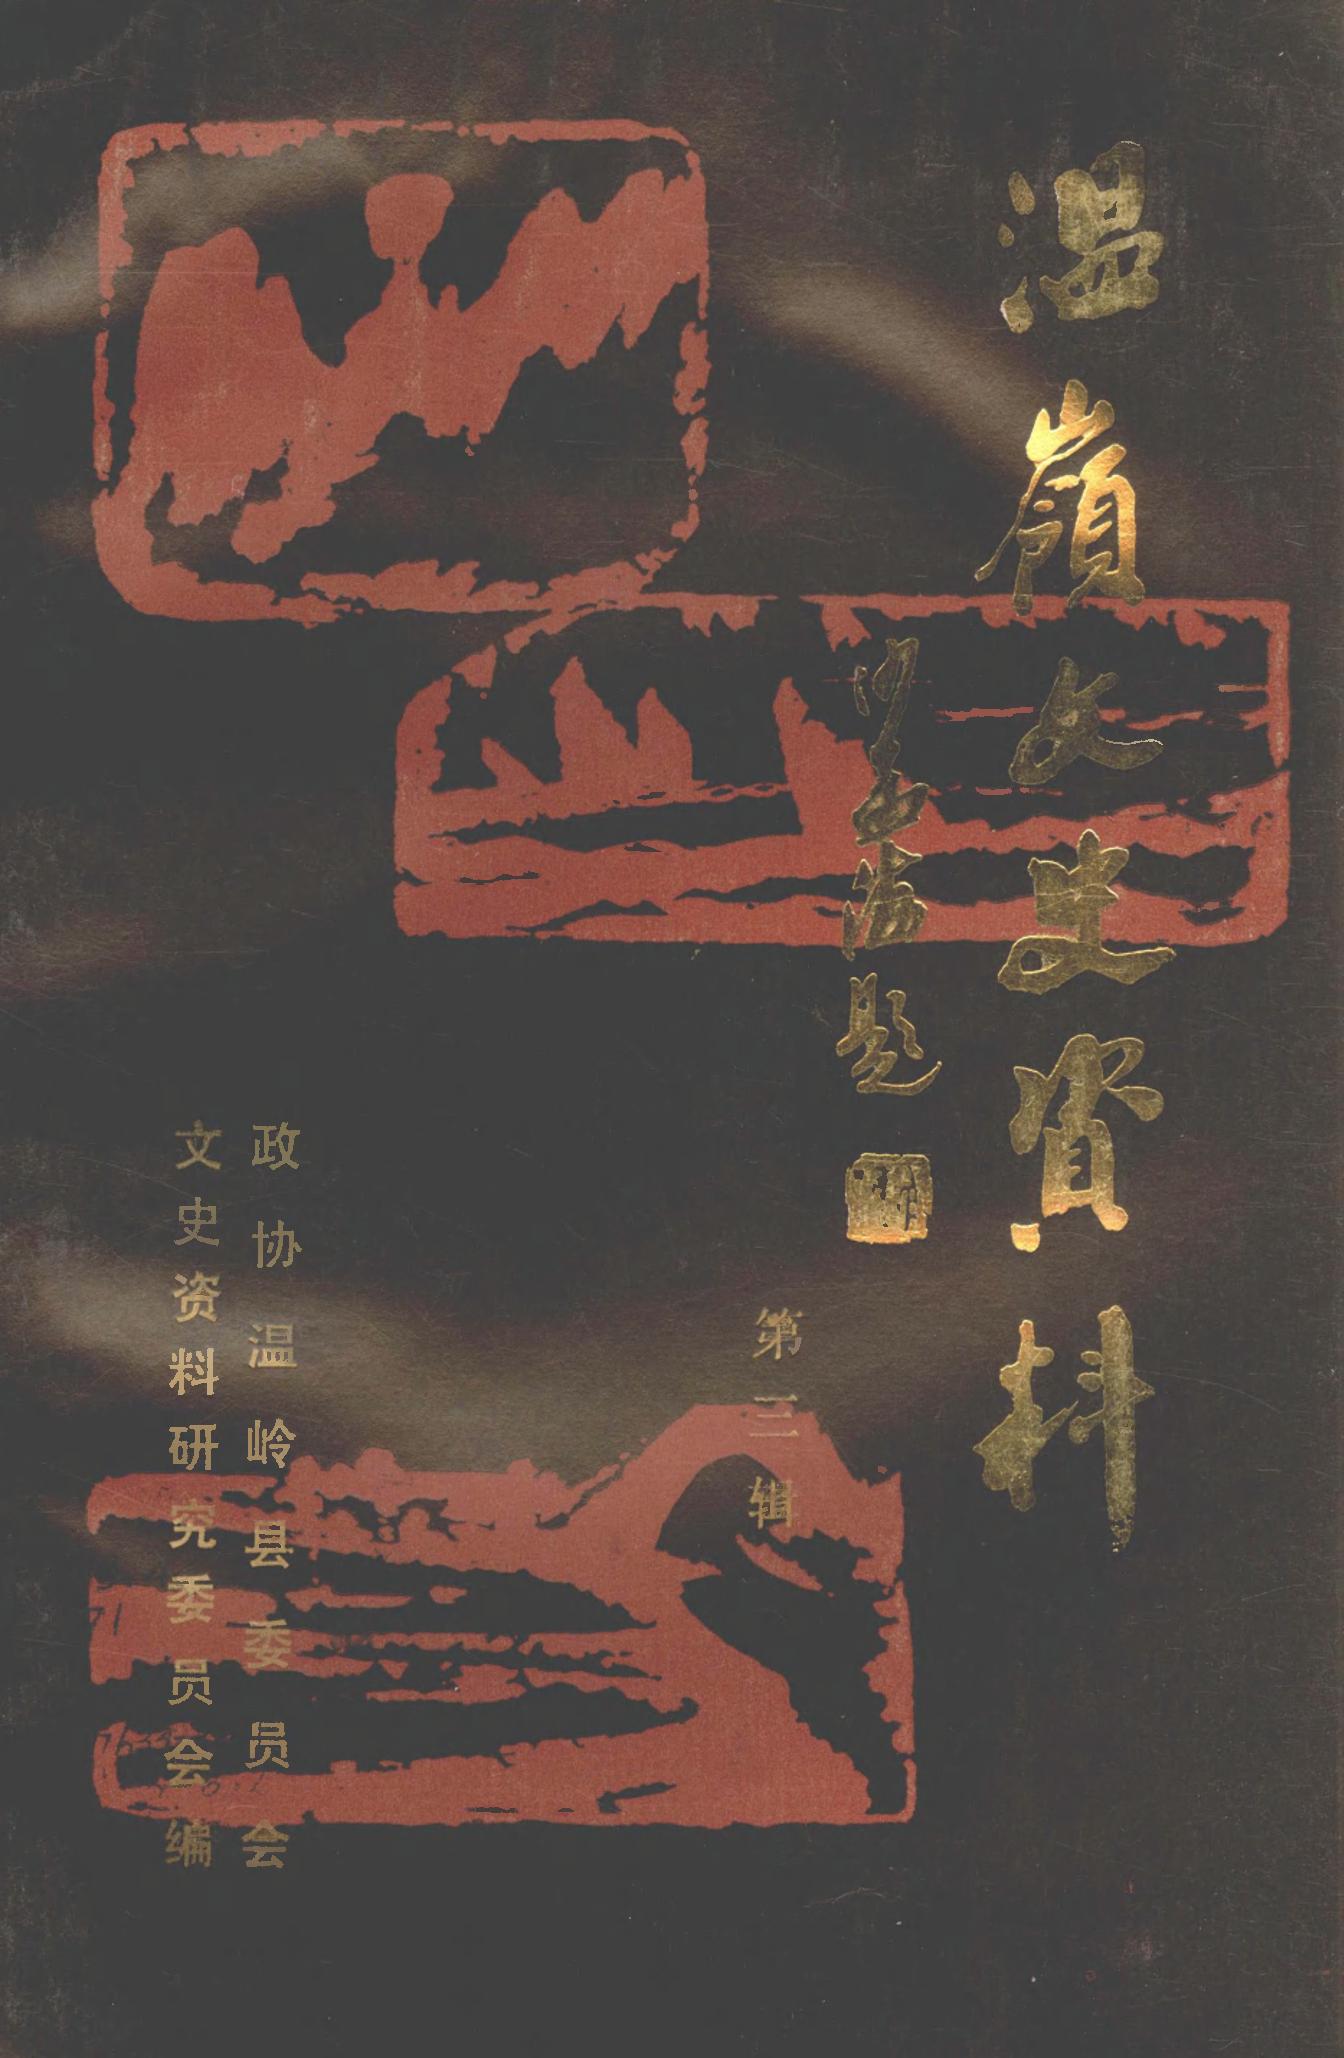 温嶺文史資料
题
第三辑
政协温岭县委员会
文史资料研究委员会编